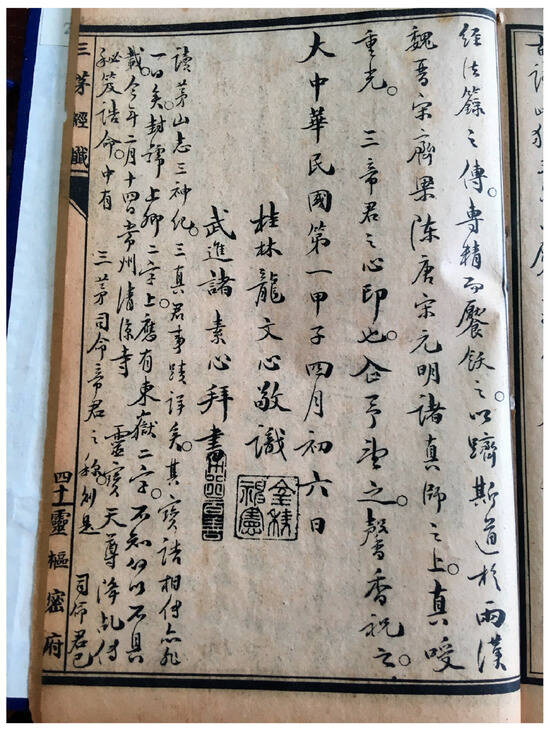 經法籙之傳。專精而饜飫之。以躋斯道於兩漢
魏晉宋齊梁陳唐宋元明諸真師之上。真受
重光。三帝君之心印也。企予望之。馨香祝之。
大中華民國第一甲子四月初六日
桂林龍文心敬識
武進諸素心拜書
讀茅山志三神紀。三真君事蹟詳矣。其寶誥相傳亦非
一日矣。封號上卿二字上應有東嶽二字。不知何以不具
載。今年二月十四日常州清涼寺靈寶天尊降乩傳
秘笈誥命。中有三茅司命帝君之稱。則是司命君已
三茅經懺
四十
靈樞密府